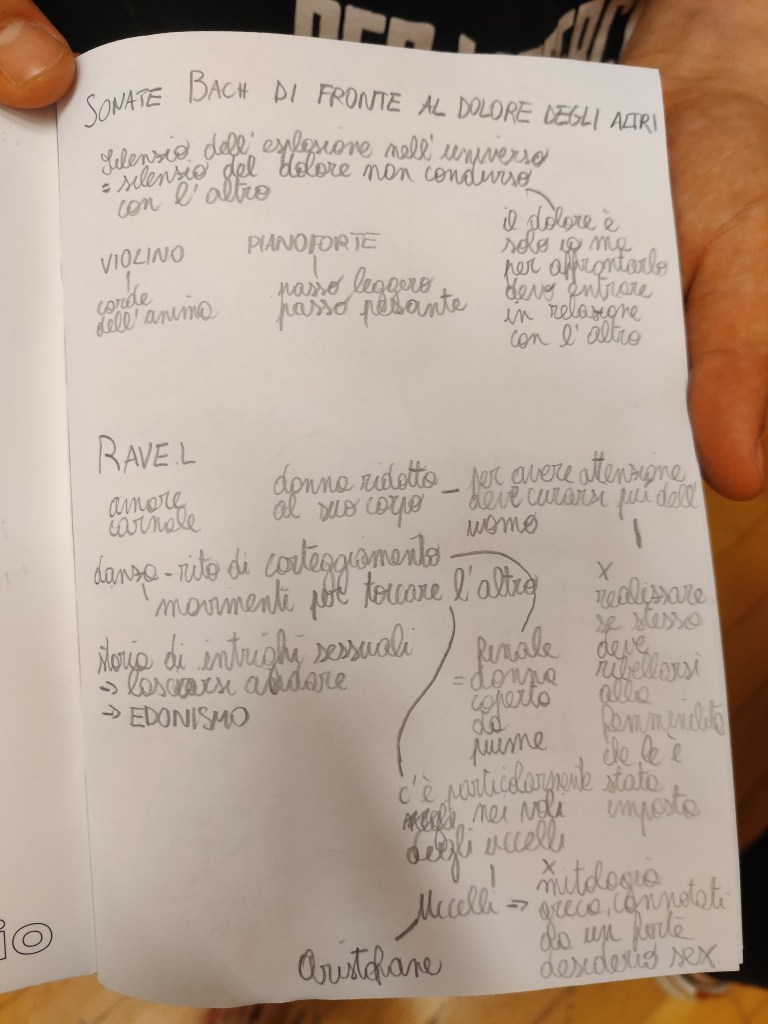 SONATE BACH DI FRONTE AL DOLORE DEGLI ALTRI
Silenzio dell'esplosione nell'universo
= silenzio del dolore non condiviso
con l'altro
il dolore è
solo io ma
per affrontarlo
devo entrare
in relazione
con l'altro
VIOLINO
corde
dell'anima
PIANOFORTE
passo leggero
passo pesante
RAVEL
amore
carnale
donna ridotta
al suo corpo
- per avere attenzione
deve curarsi più dell'
uomo
x
realizzare
se stesso
deve
ribellarsi
alla
femminilità
che le è
stata
imposta
danza - rito di corteggiamento
movimenti per toccare l'altro
Finale
= donna
coperta
da
piume
storia di intrighi sessuali
→ lasciarsi andare
→ EDONISMO
c'è particolarmente
nei voli
degli uccelli
Uccelli → x mitologia
greca, connotati
da un forte
desiderio sex
Aristofane
io